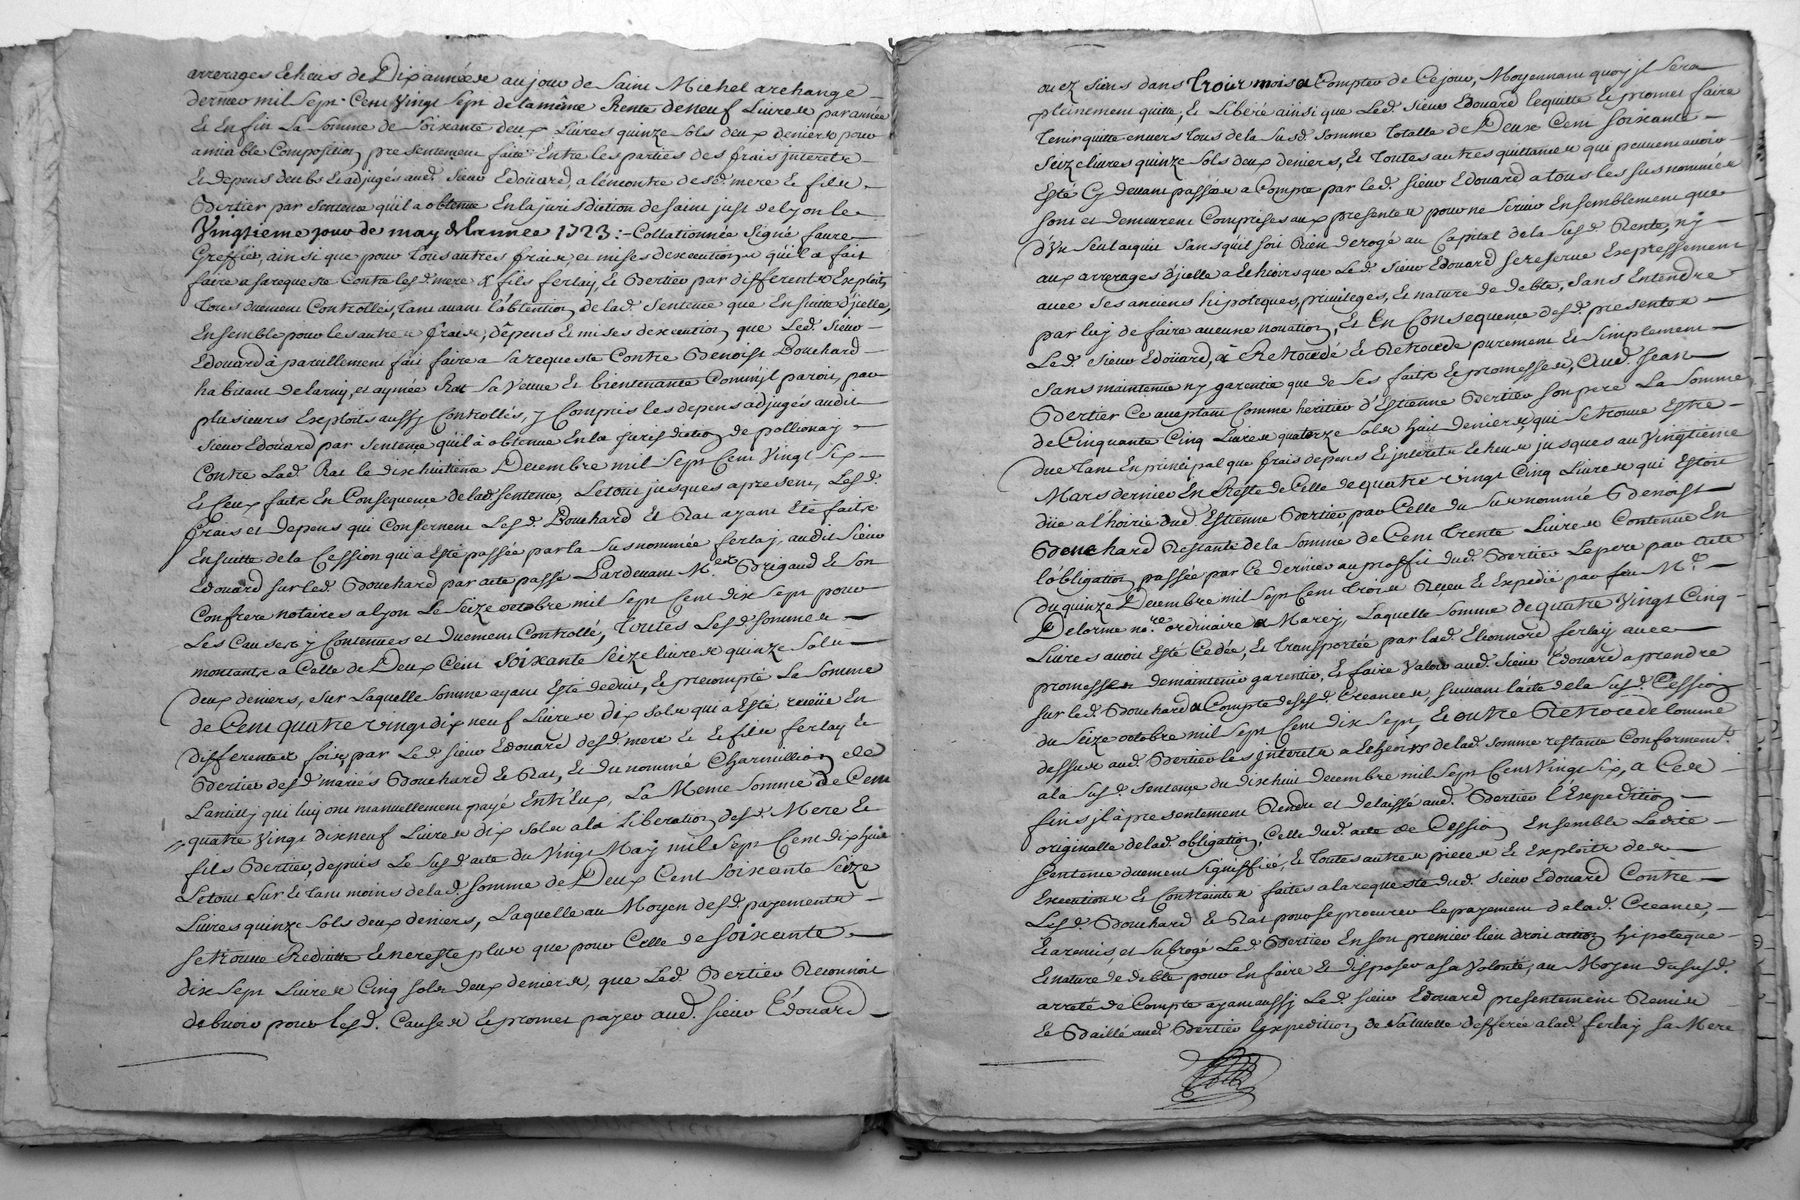 arrerages Echeus de Dix années au jour de Saint Michel archange
dernier mil Sept Cent Vingt Sept de la même Rente de neuf Livres par année
Et Enfin La Somme de Soixante deux Livres quinze Sols deux deniers pour
amiable Composition presentement faite Entre les parties des frais interets
Et depens deubs et adjugés aud. Sieur Edoüard, a l'encontre desd. mere & fils
Bertier par Sentence qu'il a obtenue En la jurisdiction de Saint just de Lyon le
Vingtieme jour de may de l'année 1723 :- Collationnée Signé faure
Greffier, ainsi que pour tous autres frais et mises d'execution qu'il a fait
faire a sa requeste Contre lesd. mere & fils ferlay, & Bertier par differents Exploits
tous duement Controllés, tant avant l'obtention de lad. Sentence que En suitte d'jcelle,
Ensemble pour les autres frais, dépens et mises d'execution que Led. Sieur
Edouard à pareillement fait faire a sa requeste Contre Benoist Bouchard
habitant de larny, et aymée Rat Sa Veuve Et bientenante Comm'jl paroit, par
plusieurs Exploits aussy Controllés, y Compris les depens adjugés audit
Sieur Edoüard par Sentence qu'il à obtenue En la jurisdiction de pollionay
Contre Lad. Rat le dixhuitieme Decembre mil Sept Cent Vingt Six
Et Ceux faits En Consequence de lad. Sentence, Le tout jusques apresent, Lesd.
frais et depens qui Conservent Lesd. Bouchard Et Rat ayant Eté faits
Ensuitte de la Cession qui a Esté passée par la Susnommée ferlay, audit Sieur
Edouard sur led. Bouchard par acte passé Pardevant Me. Brigaud & Son
Confrere notaires a Lyon Le Seize octobre mil Sept Cent dix Sept pour
Les Causes y Contenues et duement Controllé, Toutes Lesd. Sommes
montants a Celle de Deux Cent Soixante Seize livres quinze Sols
deux deniers, sur Laquelle Somme ayant Esté deduit, & precompté La Somme
de Cent quatre vingt dix neuf Livres dix sols qui a Esté reçüe En
differentes fois, par Led. Sieur Edouard desd. mere et & fils ferlay Et
Bertier desd. mariés Bouchard & Rat, Et du nommé Charmillion de
Lantilly qui luy ont manuellement payé Entr'Eux, La Meme Somme de Cent
quatre Vingt dix neuf Livres dix Sols a la Liberation desd. Mere Et
fils Bertier, depuis Le Susd. acte du Vingt May mil Sept Cent dix huit
Le tout sur Et tant moins de lad. Somme de Deux Cent Soixante Seize
Livres quinze Sols deux deniers, Laquelle au Moyen desd. payements
se trouve Reduitte Et ne reste plus que pour Celle de Soixante
dix Sept Livres Cinq Sols deux deniers, que Led. Bertier Reconnoit
debvoir pour lesd. Causes & promet payer aud. Sieur Edouard
ou ez siens dans trois mois a Compter de Cejour, Moyennant quoy jl sera
pleinement quitte, & Liberé ainsi que Led. Sieur Edouard lequitte & promet faire
tenir quitte envers tous de la Susd. Somme totalle de Deux Cent Soixante
Seize livres quinze Sols deux deniers, & toutes autres quittances qui peuvent avoir
Esté Cy devant passées a Compte par led. Sieur Edouard a tous les susnommés
sont et demeurent Comprises aux presentes pour ne Servir Ensemblement que
d'un Seul acquit Sans qu'il soit Rien derogé au Capital de la Susd. Rente, ny
aux arrerages d'jcelle a Echoir que Led. Sieur Edouard se reserve Expressement
avec ses anciens hipoteques, privileges, & nature de debte, sans Entendre
par luy de faire aucune novation, Et En Consequence desd. presentes
Led. Sieur Edoüard, a Retrocedé & Retrocede purement & simplement
sans maintenue ny garentie que de Ses faits & promesses, aud. Jean
Bertier Ce acceptant Comme heritier d'Estienne Bertier son pere La Somme
de Cinquante Cinq Livres quatorze Sols huit deniers, qui Se trouve Estre
due tant En principal que frais depens & interets Echeus jusques au Vingtieme
Mars dernier En Reste de Celle de quatre vingt Cinq Livres qui Estoit
düe a l'hoirie dud. Estienne Bertier, par Celle du Surnommé Benoist
Bouchard Restante de la Somme de Cent trente Livres Contenue En
l'obligation passée par Ce dernier au proffit dud. Bertier Le pere par acte
du quinze Decembre mil Sept Cent trois Receu & Expedié par feu Me.
Delorme nore. ordinaire a Marcy, Laquelle Somme de quatre Vingt Cinq
Livres avoit Esté Cedée, & transportée par lad. Eleonnord ferlay avec
promesses de maintenir garentir, & faire Valoir aud. Sieur Edouard a prendre
sur led. Bouchard a Compte de sesd. Creances, suivant l'acte de la Susd. Cession
du Seize octobre mil Sept Cent dix Sept, & outre Retrocede Comme
dessus aud. Bertier les interets a Echeoir de lad. Somme restante Conformemt.
a la Susd. Sentence du dixhuit Decembre mil Sept Cent Vingt Six, a Ces
fins jl à presentement Rendu et delaissé aud. Bertier l'Expedition
originalle de lad. obligation, Celle dud. acte de Cession Ensemble Ladite
Sentence duement Signiffiée, & toutes autres pieces & Exploits des
Executions & Contraintes faites a la requeste dud. Sieur Edouard Contre
Lesd. Bouchard & Rat pour se procurer le payement de lad. Creance,
Et a remis, et Subrogé Led. Bertier En son premier lieu droit action hipoteque
Et nature de debte pour En faire & disposer a sa Volonté, au Moyen du susd.
arreté de Compte ayant aussi Led. Sieur Edouard presentement Remis
Et Baillé aud. Bertier l'expedition de la tutelle defferée a lad. ferlay sa Mere